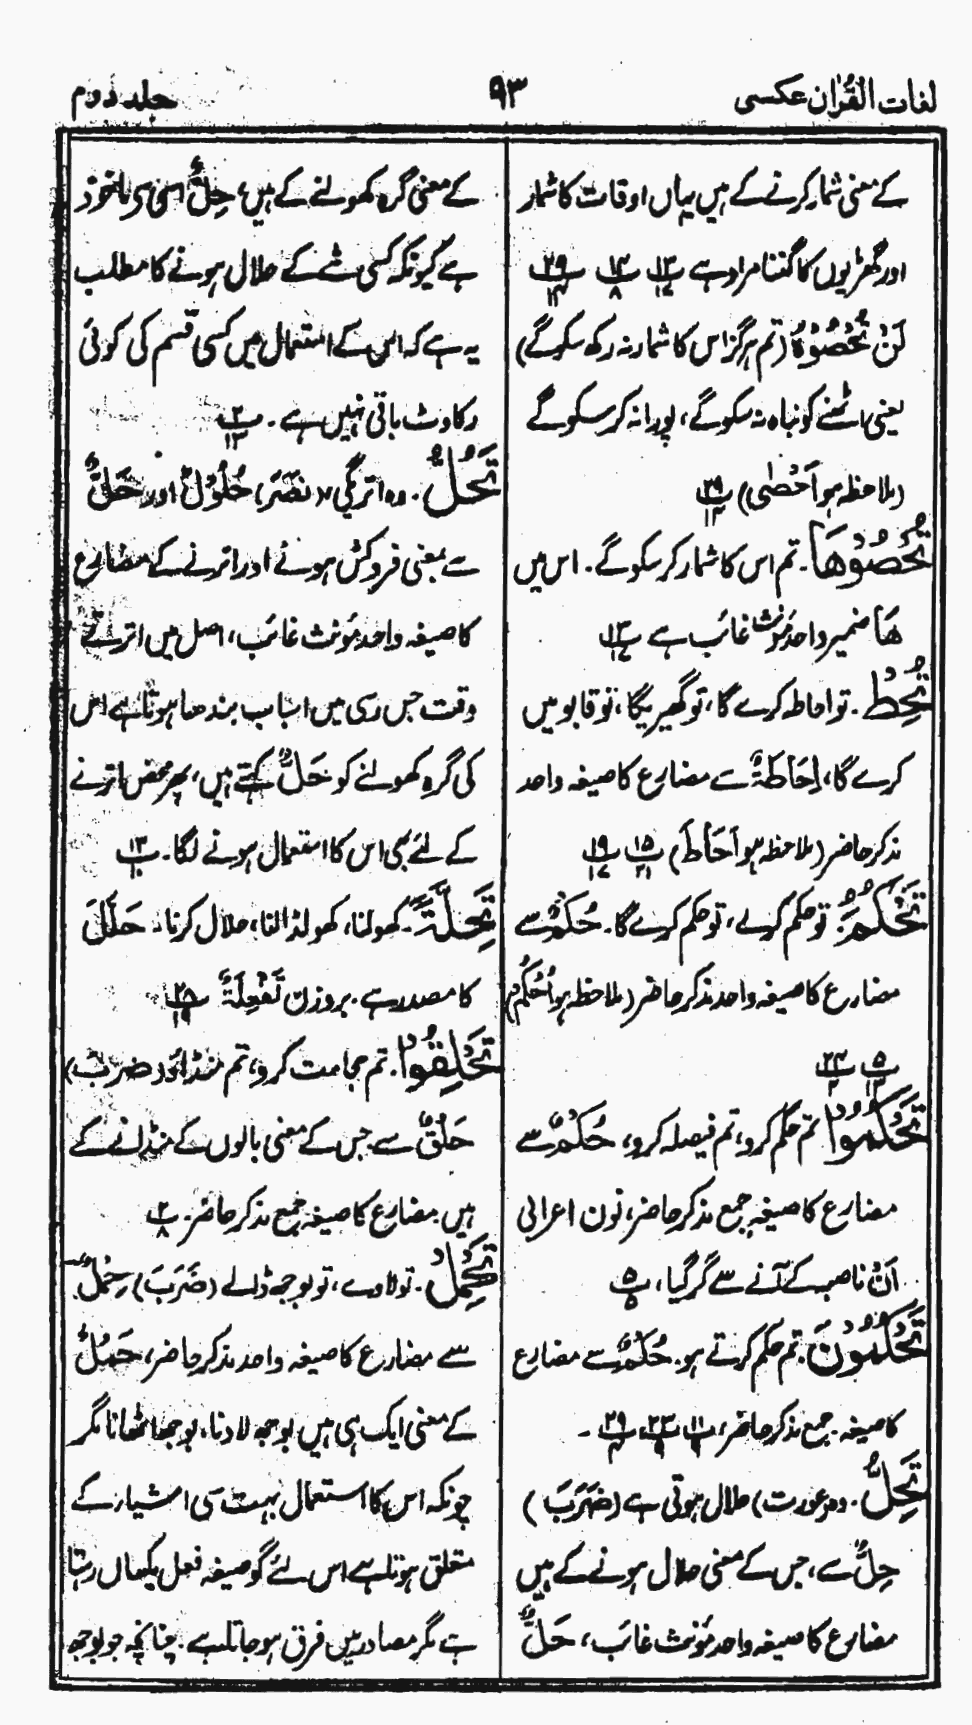 لغات القرآن عکسی
۹۳
جلد دوم
کے معنی شمار کرنے کے ہیں یہاں اوقات کا شمار
اور گھڑیوں کا گننا مراد ہے پ۱۳/۱۷ پ۱۴/۸ پ۲۹/۱۴
لَنْ تُحْصُوْهُ (تم ہرگز اس کا شمار نہ رکھ سکو گے)
یعنی اسے نباہ نہ سکو گے، پورا نہ کر سکو گے
(ملاحظہ ہو اَحْصٰی) پ۲۹/۱۳
تُحْصُوْهَا۔ تم اس کا شمار کر سکو گے۔ اس میں
هَا ضمیر واحد مؤنث غائب ہے پ۱۳/۱۷
تُحِطْ۔ تو احاطہ کرے گا، تو گھیریگا، تو قابو میں
کرے گا، اِحَاطَةٌ سے مضارع کا صیغہ واحد
مذکر حاضر (ملاحظہ ہو اَحَاطَ) پ۱۵/۲۱ پ۱۹/۱۷
تَحْكُمُ۔ تو حکم کرے، تو حکم کرے گا۔ حُكْمٌ سے
مضارع کا صیغہ واحد مذکر حاضر (ملاحظہ ہو اُحْكُمُ)
پ۵/۱۳ پ۲۴/۲
تَحْكُمُوْا تم حکم کرو، تم فیصلہ کرو، حُكْمٌ سے
مضارع کا صیغہ جمع مذکر حاضر، نون اعرابی
اَنْ ناصب کے آنے سے گر گیا، پ۵/۵
تَحْكُمُوْنَ تم حکم کرتے ہو۔ حُكْمٌ سے مضارع
کا صیغہ جمع مذکر حاضر، پ۱۱/۹ پ۲۳/۹ پ۲۹/۴ ۔
تَحِلُّ۔ وہ (عورت) حلال ہوتی ہے (ضَرَبَ)
حِلٌّ سے، جس کے معنی حلال ہونے کے ہیں
مضارع کا صیغہ واحد مؤنث غائب، حَلٌّ
کے معنی گرہ کھولنے کے ہیں، حِلٌّ اسی سے ماخوذ
ہے کیونکہ کسی شے کے حلال ہونے کا مطلب
یہ ہے کہ اس کے استعمال میں کسی قسم کی کوئی
رکاوٹ باقی نہیں ہے۔ پ۲/۱۳
تَحُلُّ۔ وہ اترگی (نَصَرَ) حُلُوْلٌ اور حَلٌّ
سے بمعنی فروکش ہونے اور اترنے کے مضارع
کا صیغہ واحد مؤنث غائب، اصل میں اترتے
وقت جس رسی میں اسباب بندھا ہوتا ہے اس
کی گرہ کھولنے کو حَلٌّ کہتے ہیں، پھر محض اترنے
کے لئے بھی اس کا استعمال ہونے لگا۔ پ۱۳/۱۰
تَحِلَّةَ۔ کھولنا، کھول ڈالنا، حلال کرنا۔ حَلَّلَ
کا مصدر ہے۔ بروزن تَفْعِلَةٌ پ۲۸/۱۹
تَحْلِقُوْا۔ تم حجامت کرو، تم منڈاؤ (ضَرَبَ)
حَلْقٌ سے جس کے معنی بالوں کے منڈانے کے
ہیں مضارع کا صیغہ جمع مذکر حاضر۔ پ۲/۸
تَحْمِلْ۔ تو لاوے، تو بوجھ ڈالے (ضَرَبَ) حِمْلٌ
سے مضارع کا صیغہ واحد مذکر حاضر، حَمْلٌ
کے معنی ایک ہی ہیں بوجھ لادنا، بوجھ اٹھانا مگر
چونکہ اس کا استعمال بہت سی اشیار کے
متعلق ہوتا ہے اس لئے گو صیغہ فعل یکساں رہتا
ہے مگر مصادر میں فرق ہو جاتا ہے۔ چنانچہ جو بوجھ